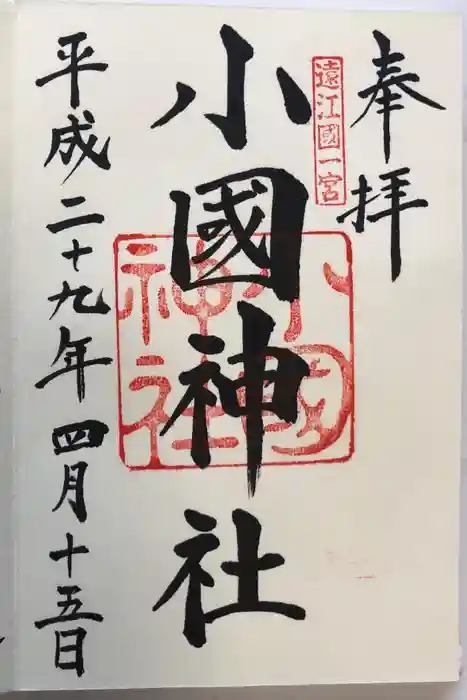 奉拝
遠江國一宮
小國神社
小國神社
平成二十九年四月十五日